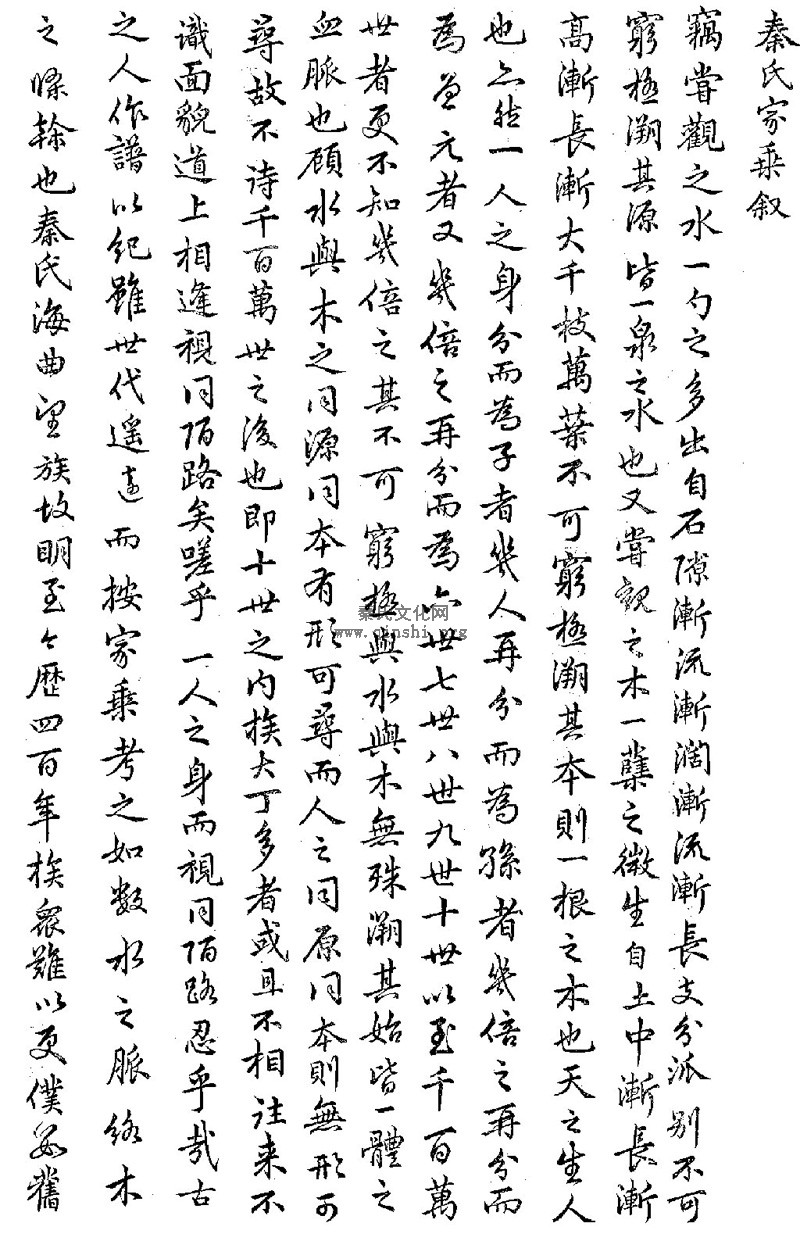 秦氏家乗叙
竊嘗觀之水一勺之多出自石隙漸流漸濶漸流漸長支分派别不可
窮極溯其源皆一泉之水也又嘗觀之木一蘖之微生自土中漸長漸
髙漸長漸大千枝萬葉不可窮極溯其本則一根之木也天之生人
也亦然一人之身分而為子者幾人再分而為孫者幾倍之再分而
為曽元者又幾倍之再分而為六世七世八世九世十世以至千百萬
世者更不知幾倍之其不可窮極與水與木無殊溯其始皆一體之
血脈也顧水與木之同源同本有形可尋而人之同原同本則無形可
尋故不待千百萬世之後也即十世之内族大丁多者或且不相往来不
識面貌道上相逢視同陌路矣嗟乎一人之身而視同陌路忍乎哉古
之人作譜以紀雖世代遥遠而按家乗考之如數水之脈絡木
之條榦也秦氏海曲望族故明至今歴四百年族衆難以更僕舊
秦氏文化网
www.qinshi.org